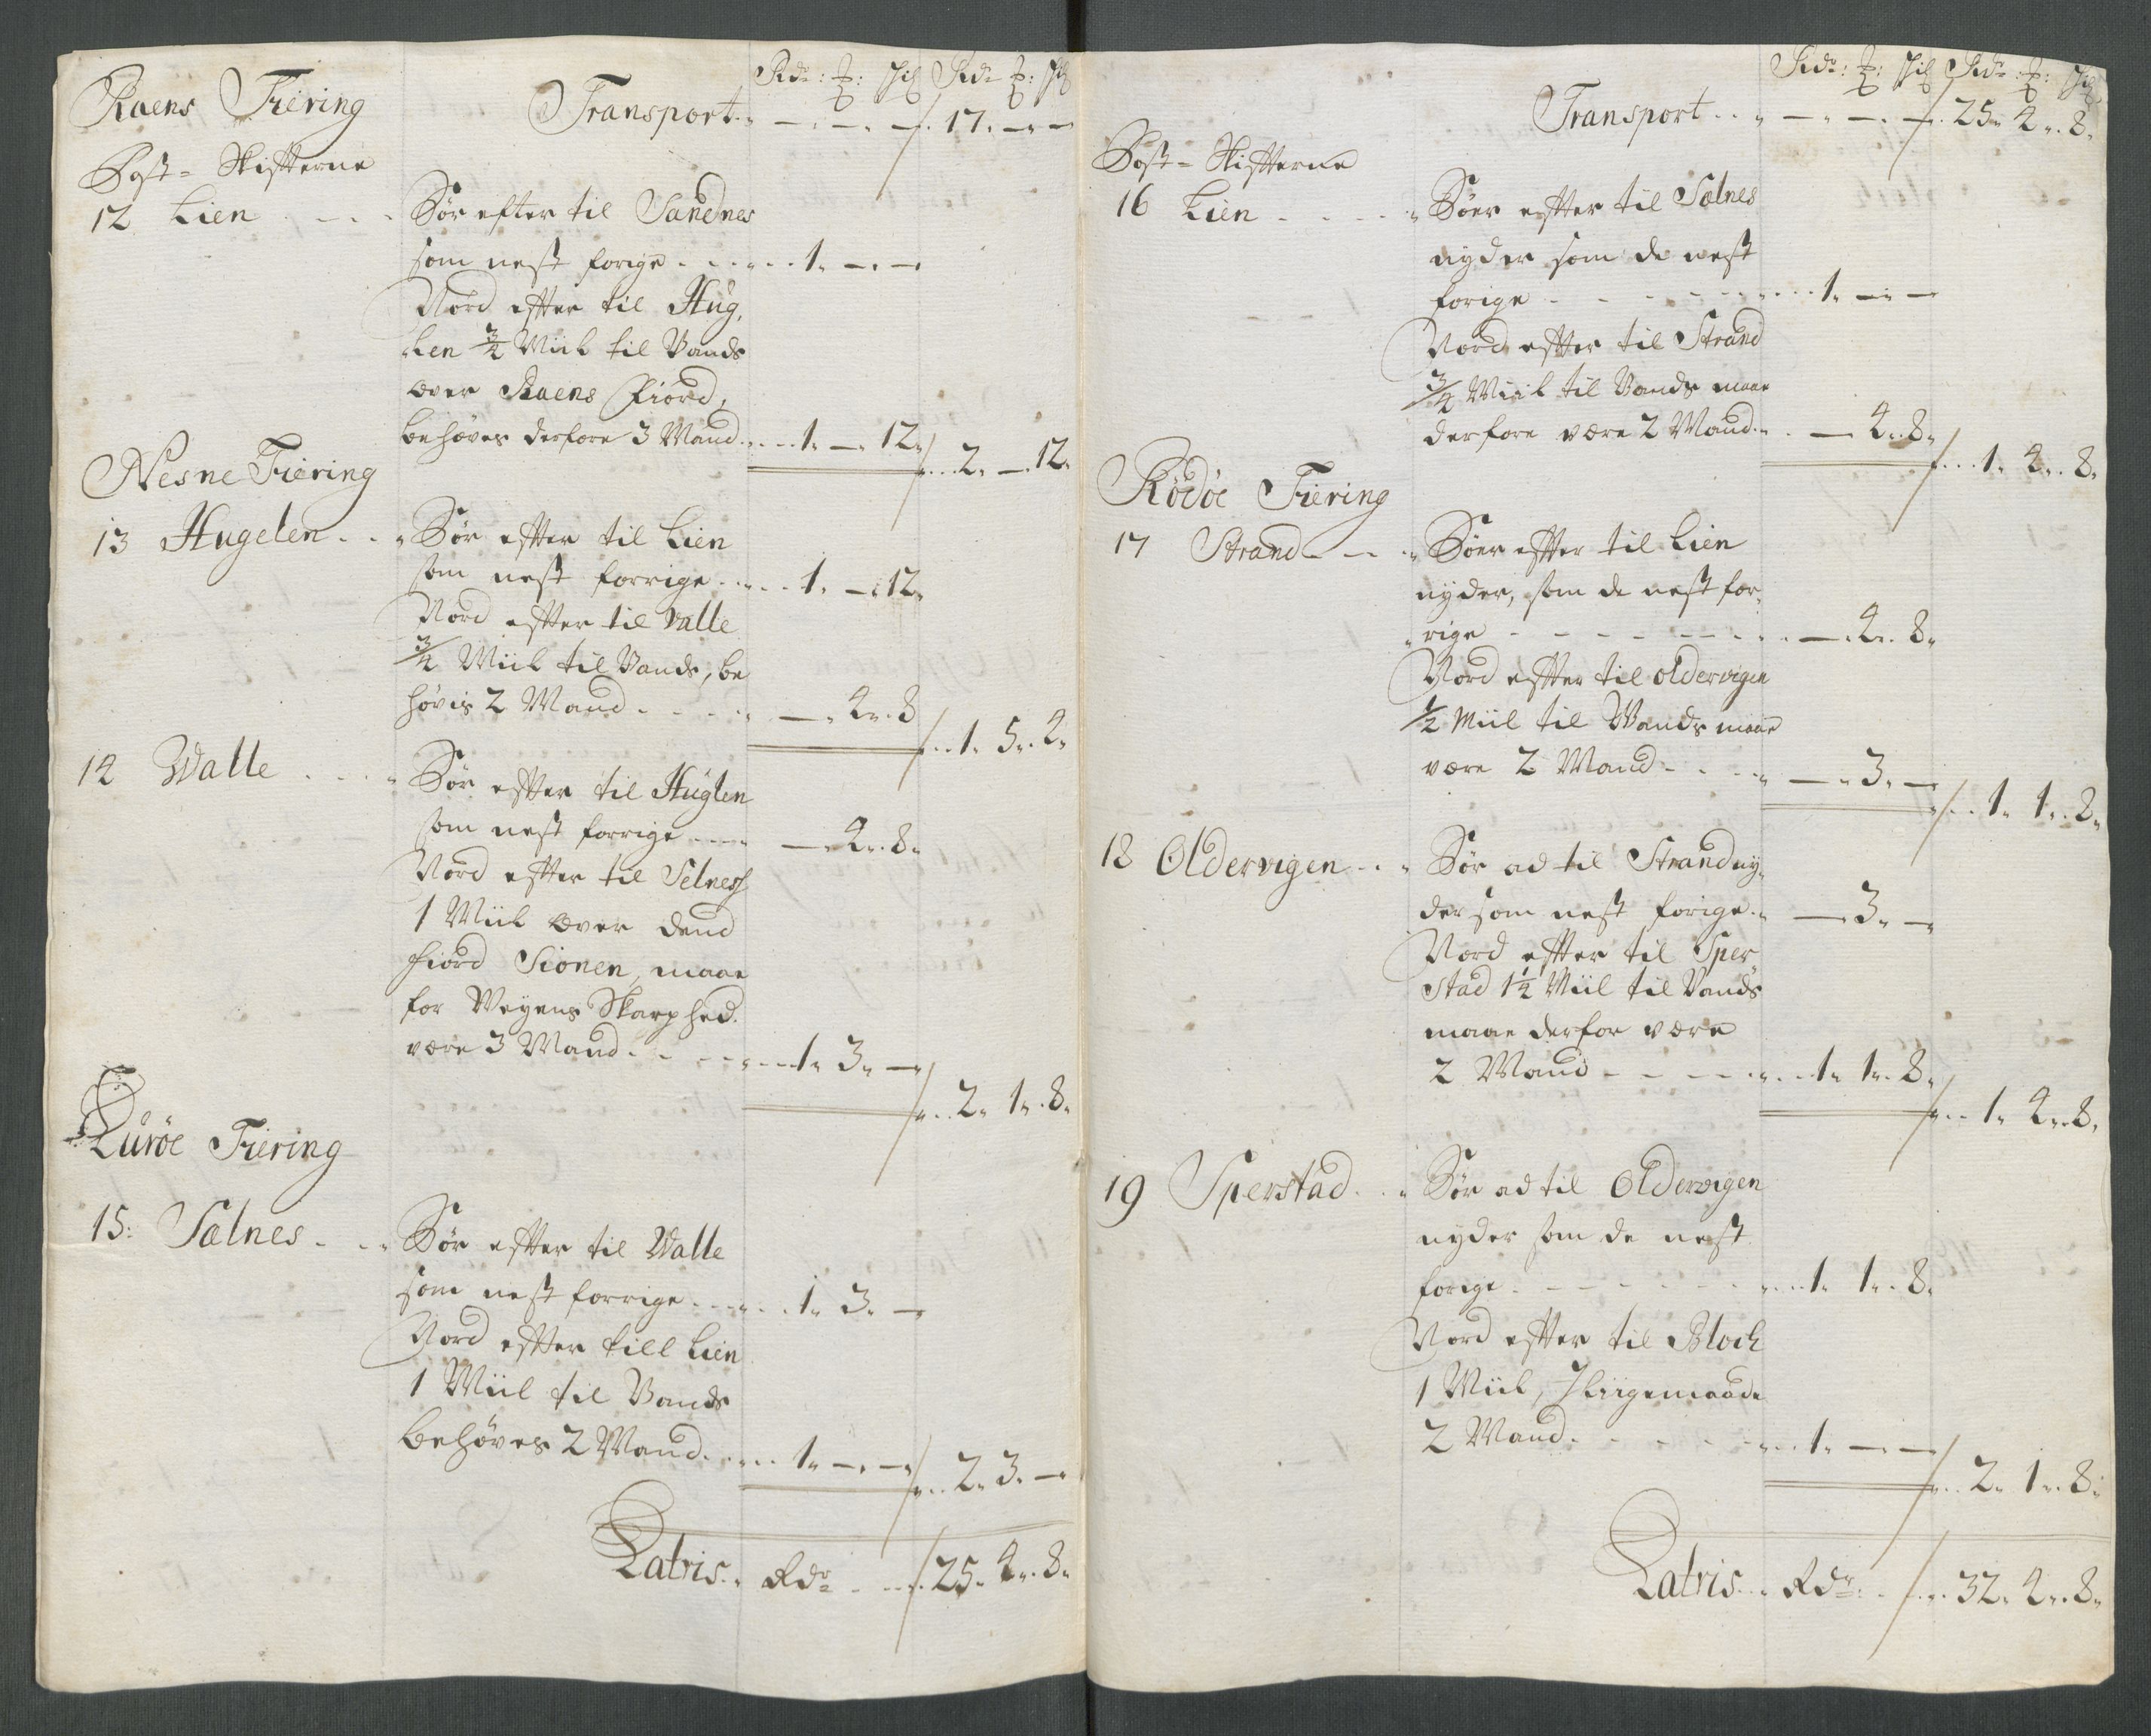 Rdr: ꝑ: sh Rdr ꝑ: sh
Raens Fiering Transport. - - - 17. - -
Post-Skifterne
12 Lien - - - Sør efter til Sandnes
som nest forige - - - - - 1. - -
Nord efter til Hug,
len 3/4 Miil til Vands
over Raens Fiord,
behøves derfore 3 Mand - - 1. - 12. 2. - 12.
Nesne Fiering
13 Hugelen - - Sør efter til Lien
som nest forrige - - - 1. - 12.
Nord efter til Valle
3/4 Miil til Vands, be
høvis 2 Mand - - - - - 4. 8 1. 5. 4.
14 Walle - - - Sør efter til Huglen
som nest forrige - - - - 4. 8.
Nord efter til Selness
1 Miil over dend
Fiord Sionen, maae
for Veyens Skarphed.
være 3 Mand - - - - 1. 3. - 2. 1. 8.
Lurøe Fiering
15: Sælnes - - - Sør efter til Walle
som nest forrige - - - 1. 3. -
Nord efter till Lien
1 Miil til Vands
behøves 2 Mand - - - 1. - - 2. 3. -
Latris. Rdr - - 25. 4. 8.
Rdr: ꝑ: sh Rdr ꝑ: sh
Transport - - - - - 25. 4. 8.
Post-Skifterne
16 Lien - - - - Søer efter til Sælnes
nyder som de nest
forige - - - - - - - 1. - -
Nord efter til Strand
3/4 Miil til Vands maae
derfore være 2 Mand - - 4. 8. 1. 4. 8.
Rødøe Fiering
17 Strand - - - Søer efter til Lien
nyder, som de nest for,
rige - - - - - - - - - 4. 8.
Nord efter til oldervigen
1/2 Miil til Vands maae
være 2 Mand - - - - - 3. - 1. 1. 8.
18 Oldervigen - - Sør ad til Strand ny,
der som nest forige - - 3. -
Nord efter til Sper
stad 1 1/4 Miil til Vands
maae derfor være
2 Mand - - - - - 1. 1. 8. 1. 4. 8.
19 Sperstad - - Sør ad til Oldervigen
nyder som de nest
forige - - - - - - - 1. 1. 8.
Nord efter til Bloch
1 Miil, Jliigemaade
2 Mand - - - - - - 1. - - 2. 1. 8.
Latris - Rdr - - 32. 4. 8.